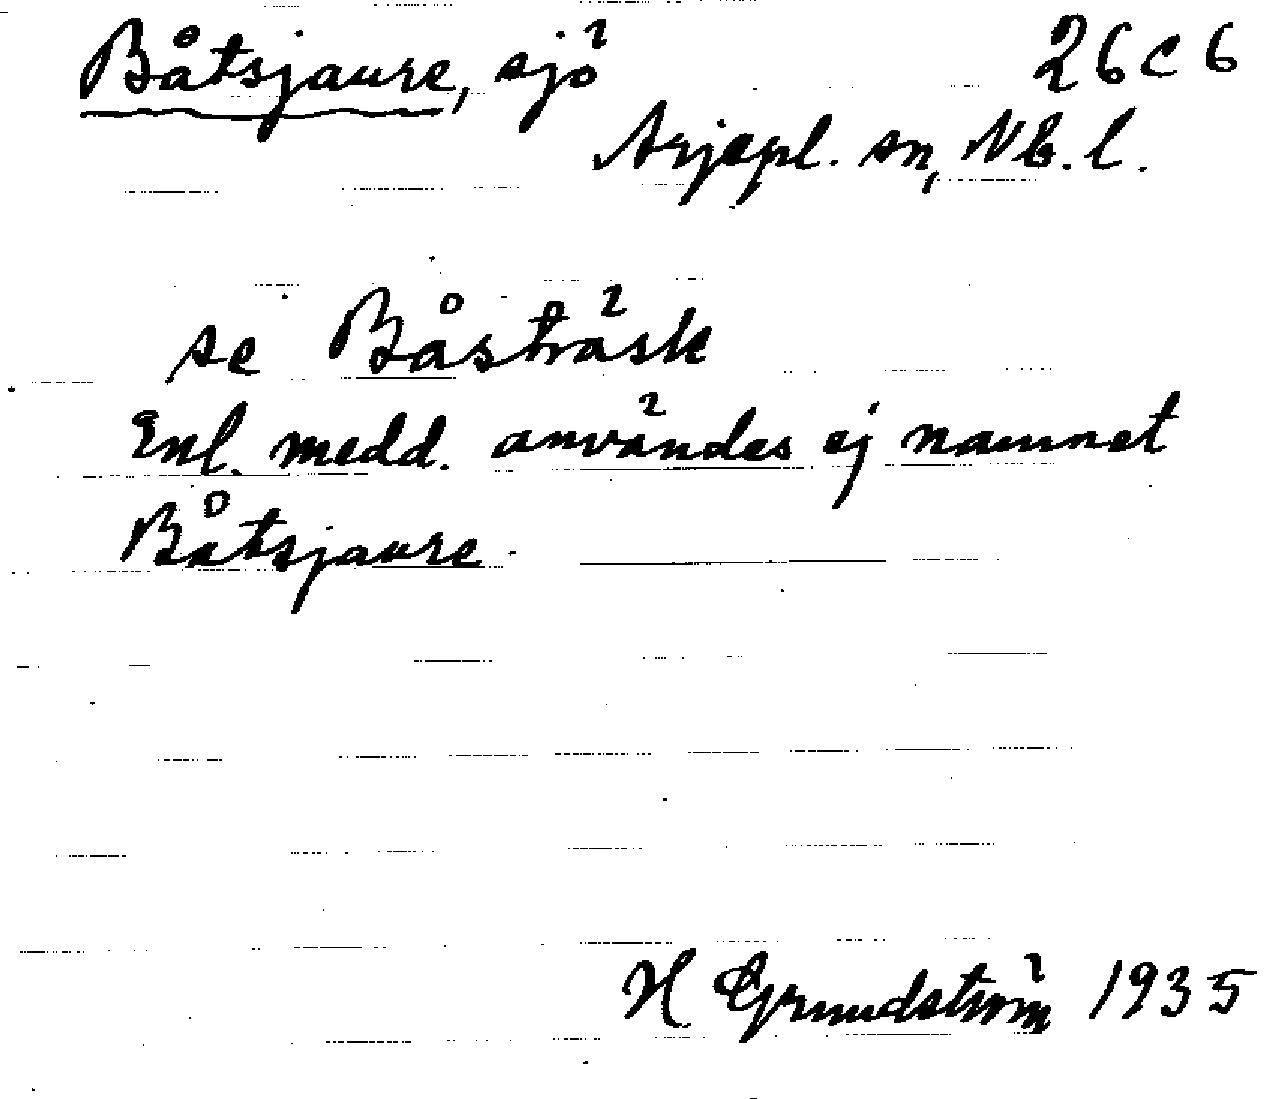 Båtsjaure, sjö 26 C 6
Arjepl. sn, Nb. l.
se Båsträsk
Enl. medd. användes ej namnet
Båtsjaure.
H Grundström 1935